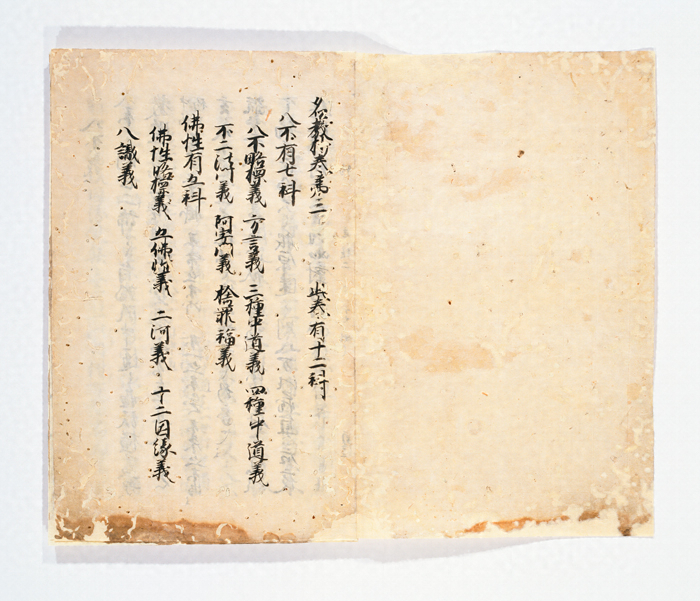 名教抄卷第二　此卷有十二科
八不有七科
八不略標義　方言義　三種中道義　四種中道義
不二法門義　阿字門義　捨罪福義
佛性有五科
佛性略標義　五佛性義　二河義　十二因縁義
八識義